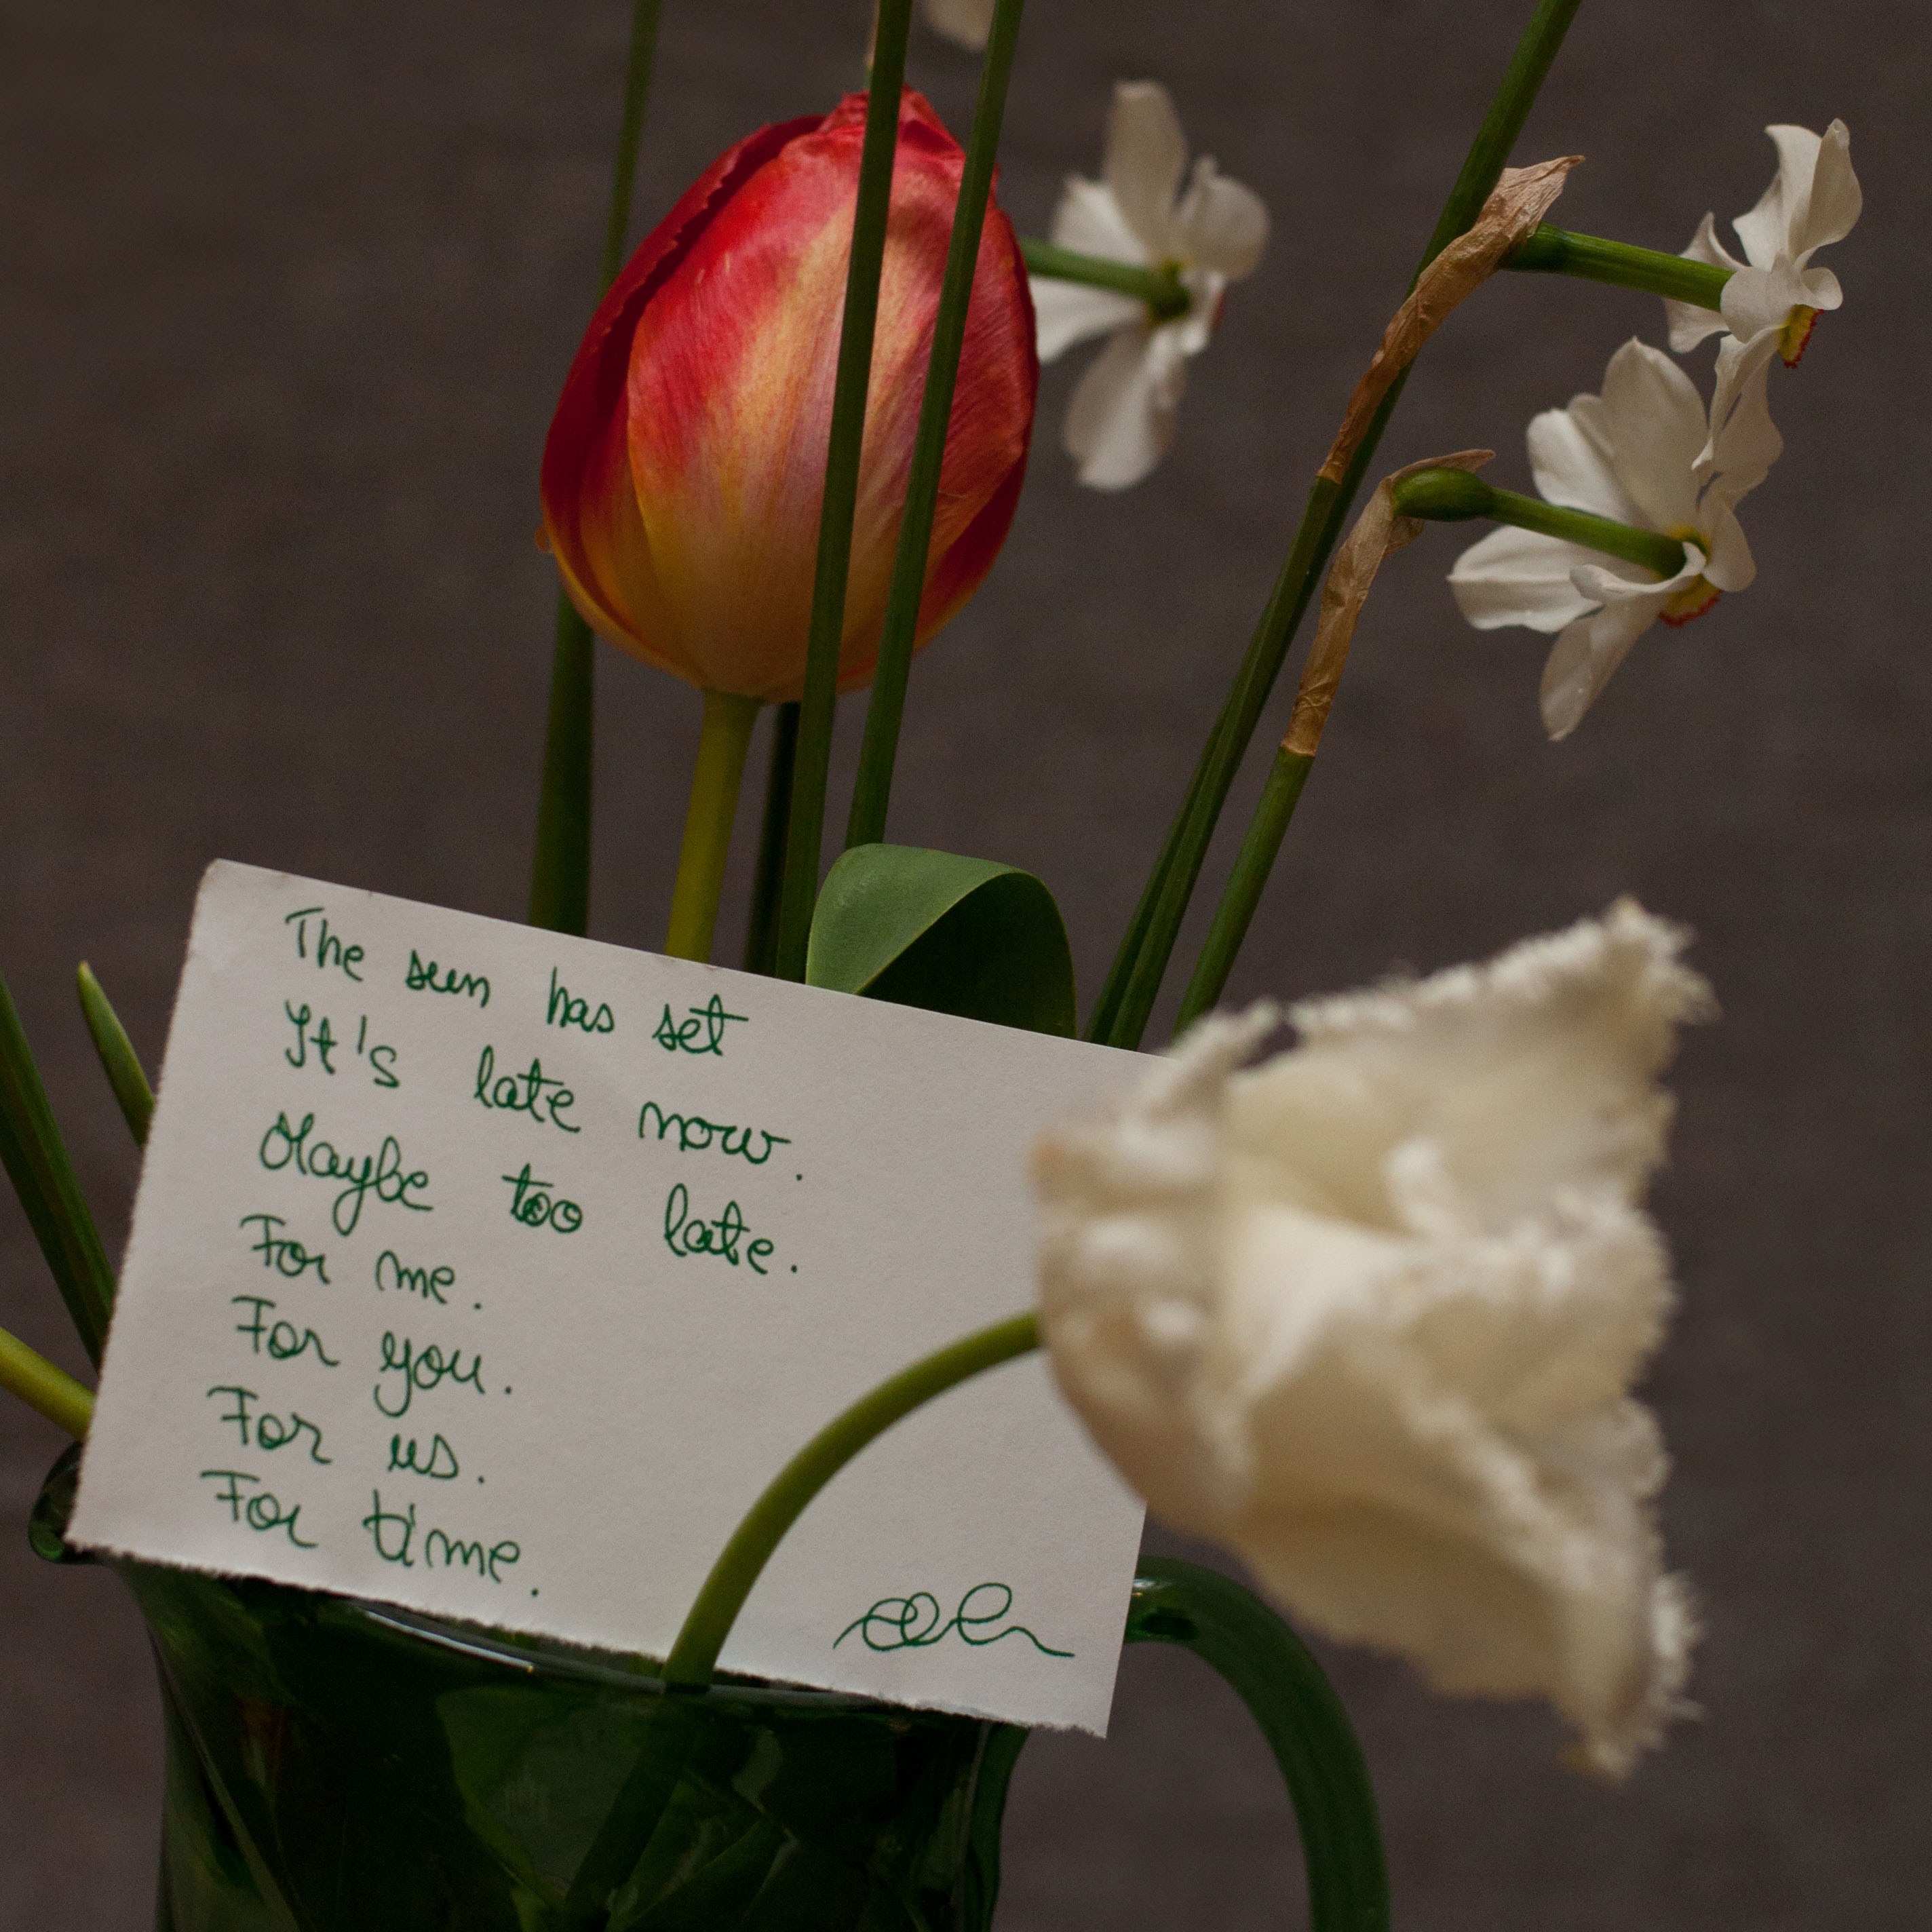 The sun has set
It's late now.
Maybe too late.
For me.
For you.
For us.
For time.